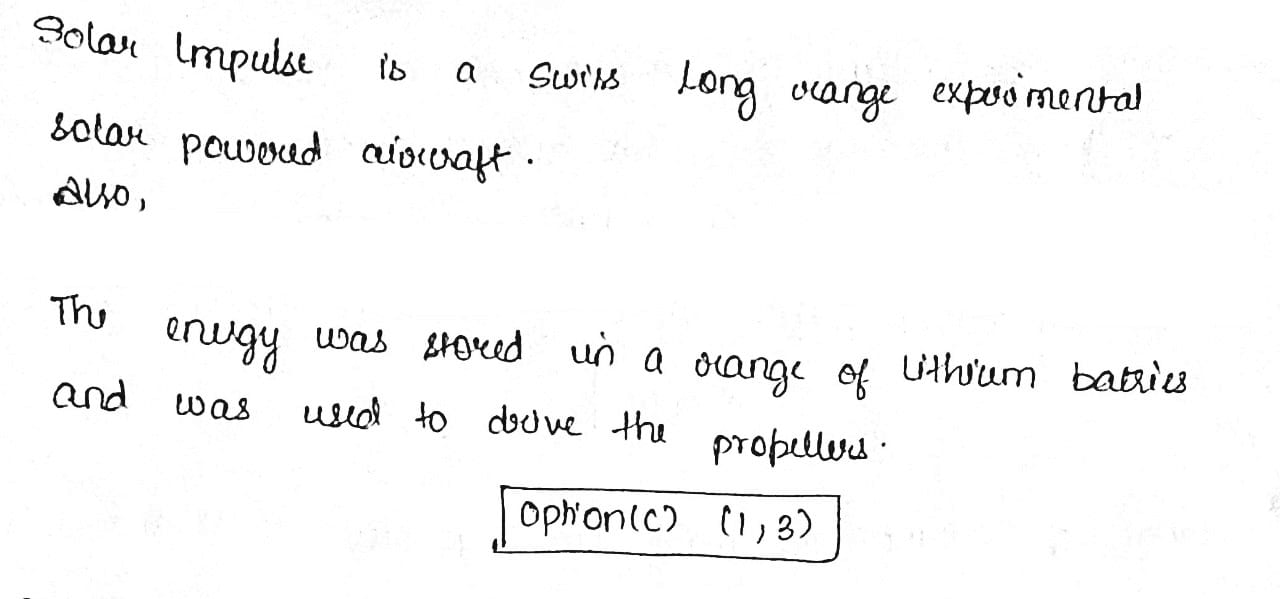 Solar Impulse is a Swiss Long range experimental
solar powered aircraft.
Also,
The energy was stored in a range of Lithium batries
and was used to drive the propellers.
Option(C) (1,3)